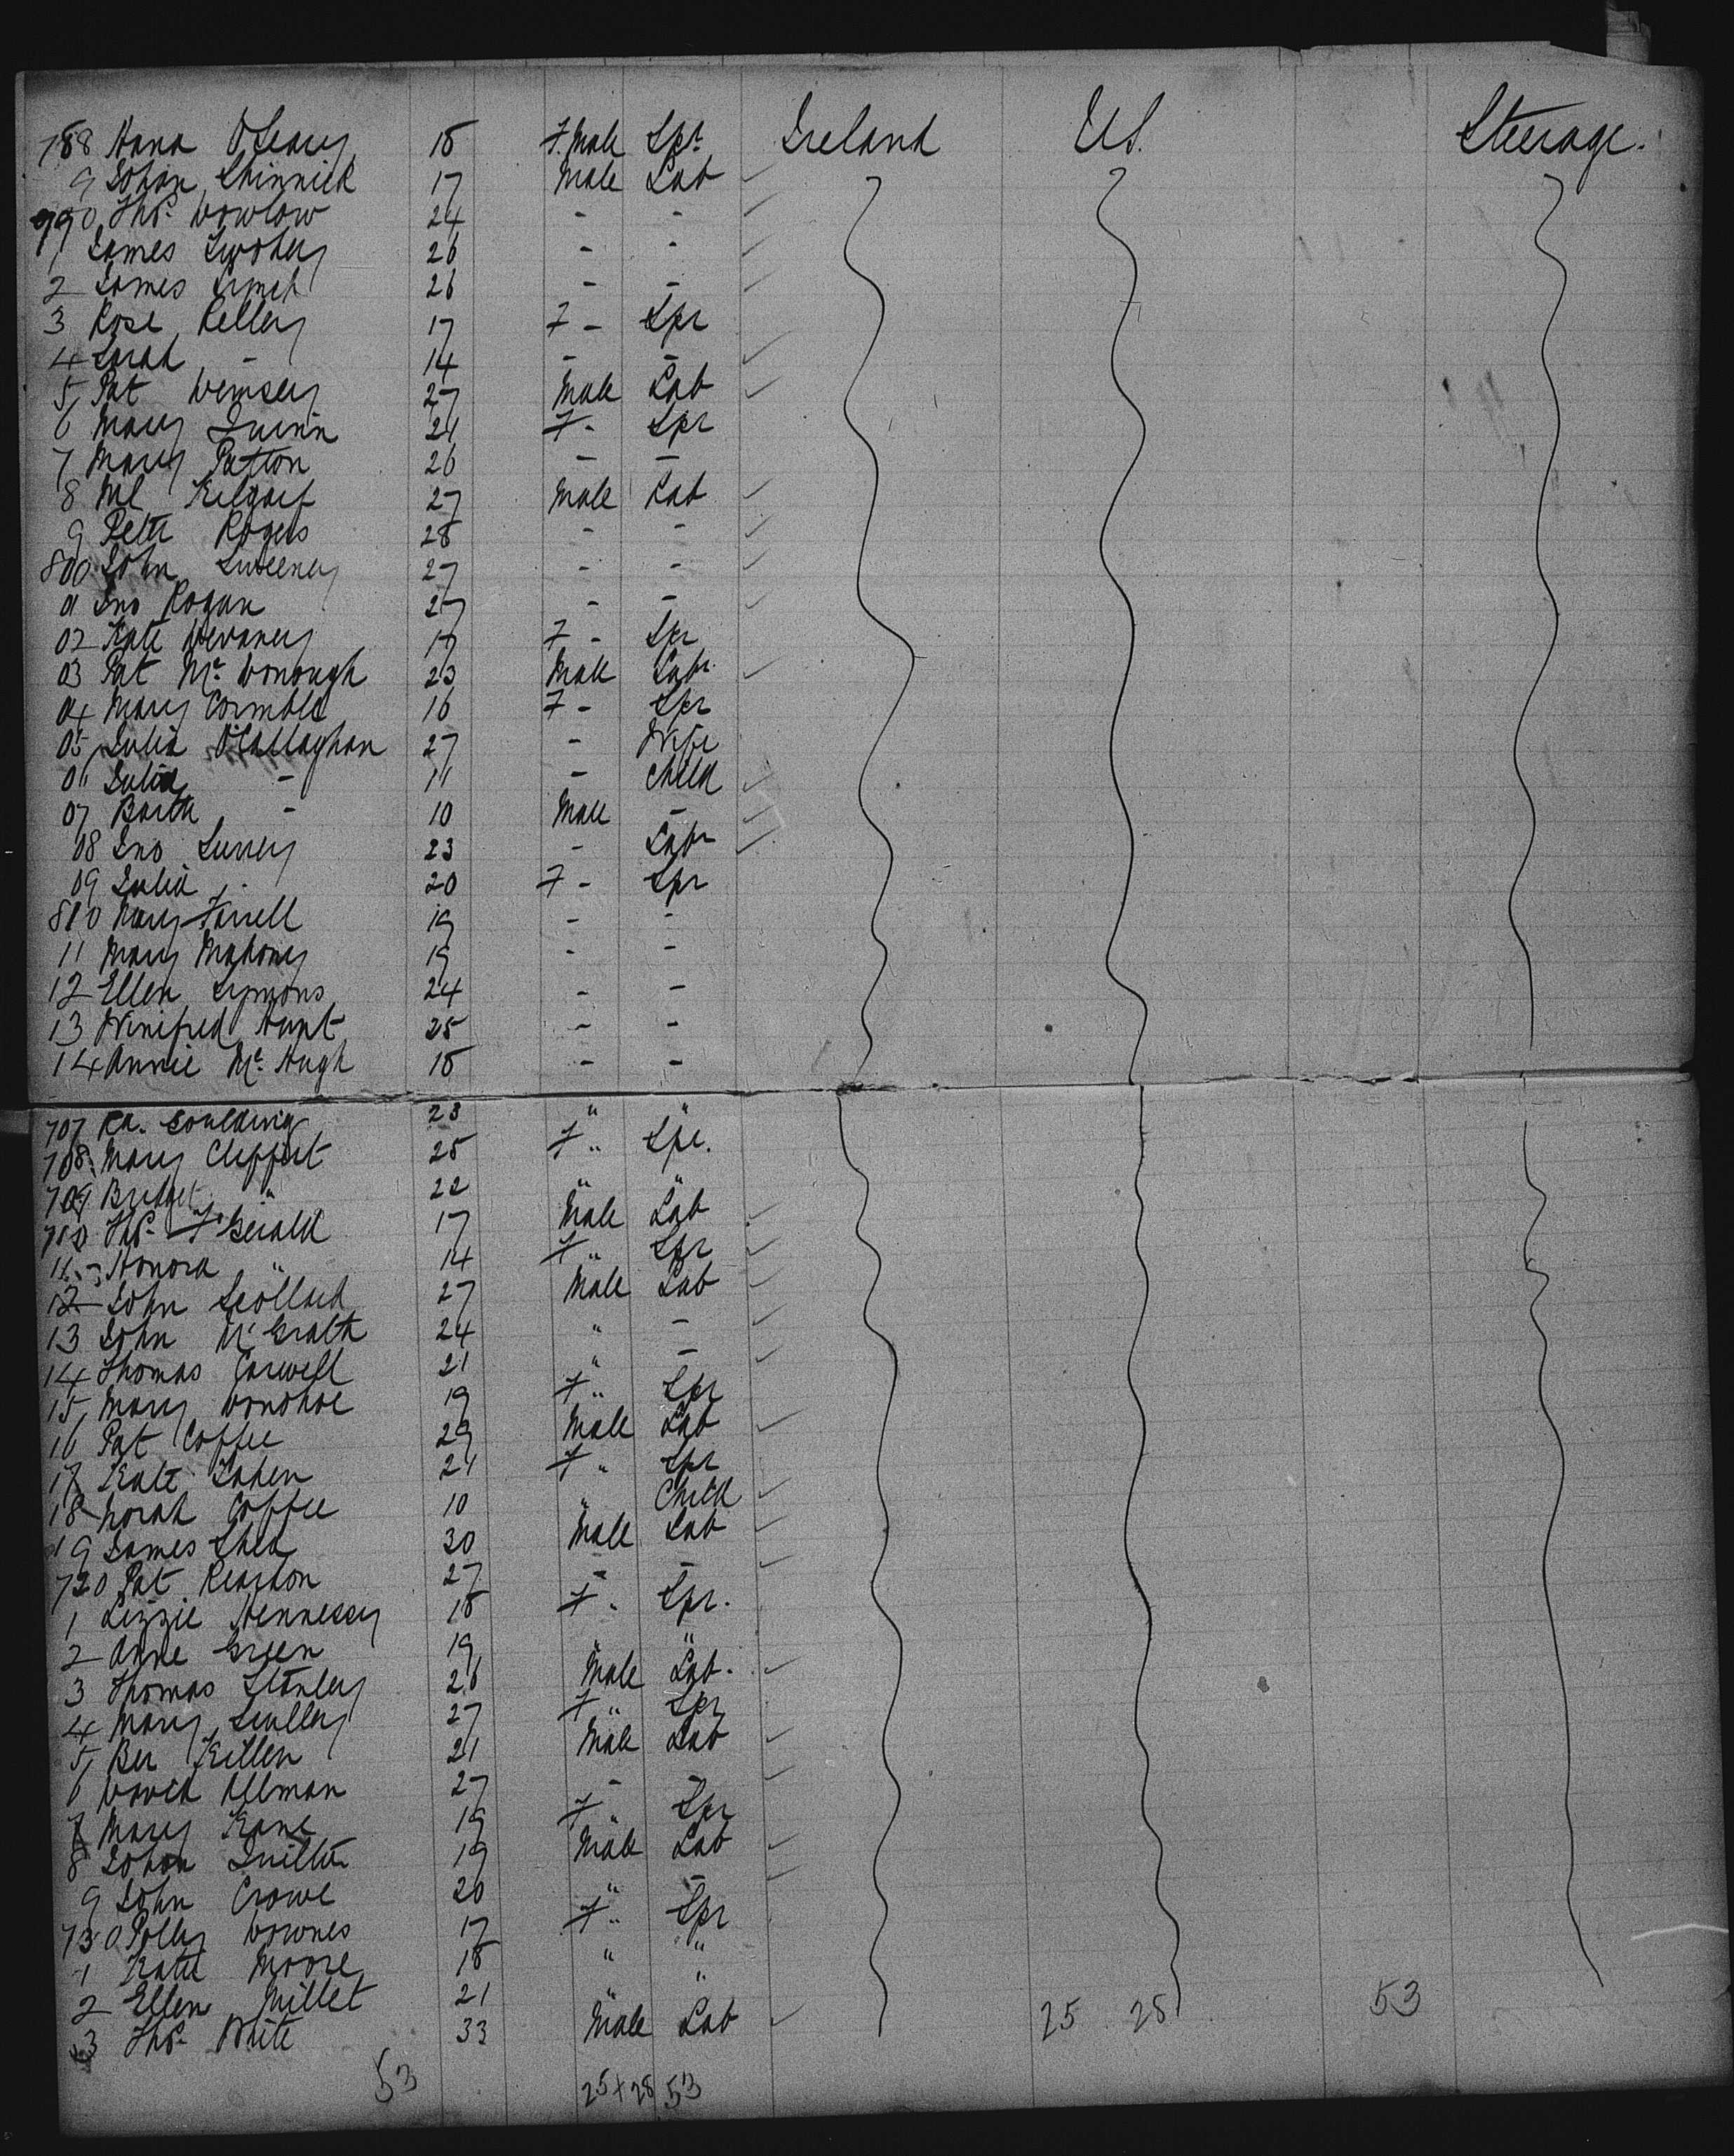 788 Hana O'Leary 18 F. Male Spr Ireland U.S. Steerage.
9 Johan Shinnick 17 Male Lab
790 Thos. Dowlow 24 - -
1 James Twohey 26 - -
2 James Lynch 26 - -
3 Rose Kelley 17 F - Spr
4 Sarah - 14 - -
5 Pat Dempsey 27 Male Lab
6 Mary Quinn 21 F - Spr
7 Mary Patton 26 - -
8 Ml 27 Male Lab
9 Peter Rogers 28 - -
800 John Sweeney 27 - -
01 Jno Rogan 27 - -
02 Kate Devaney 17 F - Spr
03 Pat Mc Donough 23 Male Labr
04 Mary 16 F - Spr
05 Julia O'Callaghan 27 - Wife
06 Julia - 11 - Child
07 Barth - 10 Male -
08 Jno 23 - Labr
09 Julia - 20 F - Spr
810 Mary Farrell 19 - -
11 Mary Mahoney 19 - -
12 Ellen Symons 24 - -
13 Winifred Hunt 25 - -
14 Annie Mc Hugh 18 - -
707 Rd. Goulding 23 " "
708 Mary 25 F " Spr.
709 Bridget " 22 " "
710 Thos. F'Gerald 17 Male Lab
11 Honora " 14 F " Spr
12 John Scollard 27 Male Lab
13 John McGrath 24 " -
14 Thomas Carwell 21 " -
15 Mary Donohoe 19 F " Spr
16 Pat Coffee 29 Male Lab
17 Kate 21 F " Spr
18 Norah Coffee 10 " Child
19 James Shea 30 Male Lab
720 Pat Reardon 27 - -
1 Lizzie Hennessy 18 F - Spr.
2 Anne Green 19 " "
3 Thomas Stanley 26 Male Lab.
4 Mary Scully 27 F " Spr
5 Killen 21 Male Lab
6 David Ullman 27 - -
7 Mary Kane 19 F " Spr
8 Johan Quilter 19 Male Lab
9 John Crowe 20 " -
730 Polley Downes 17 F " Spr
1 Kate Moore 18 " "
2 Ellen Millet 21 " "
3 Thos. White 33 Male Lab 25 28 53
53 25+28 53